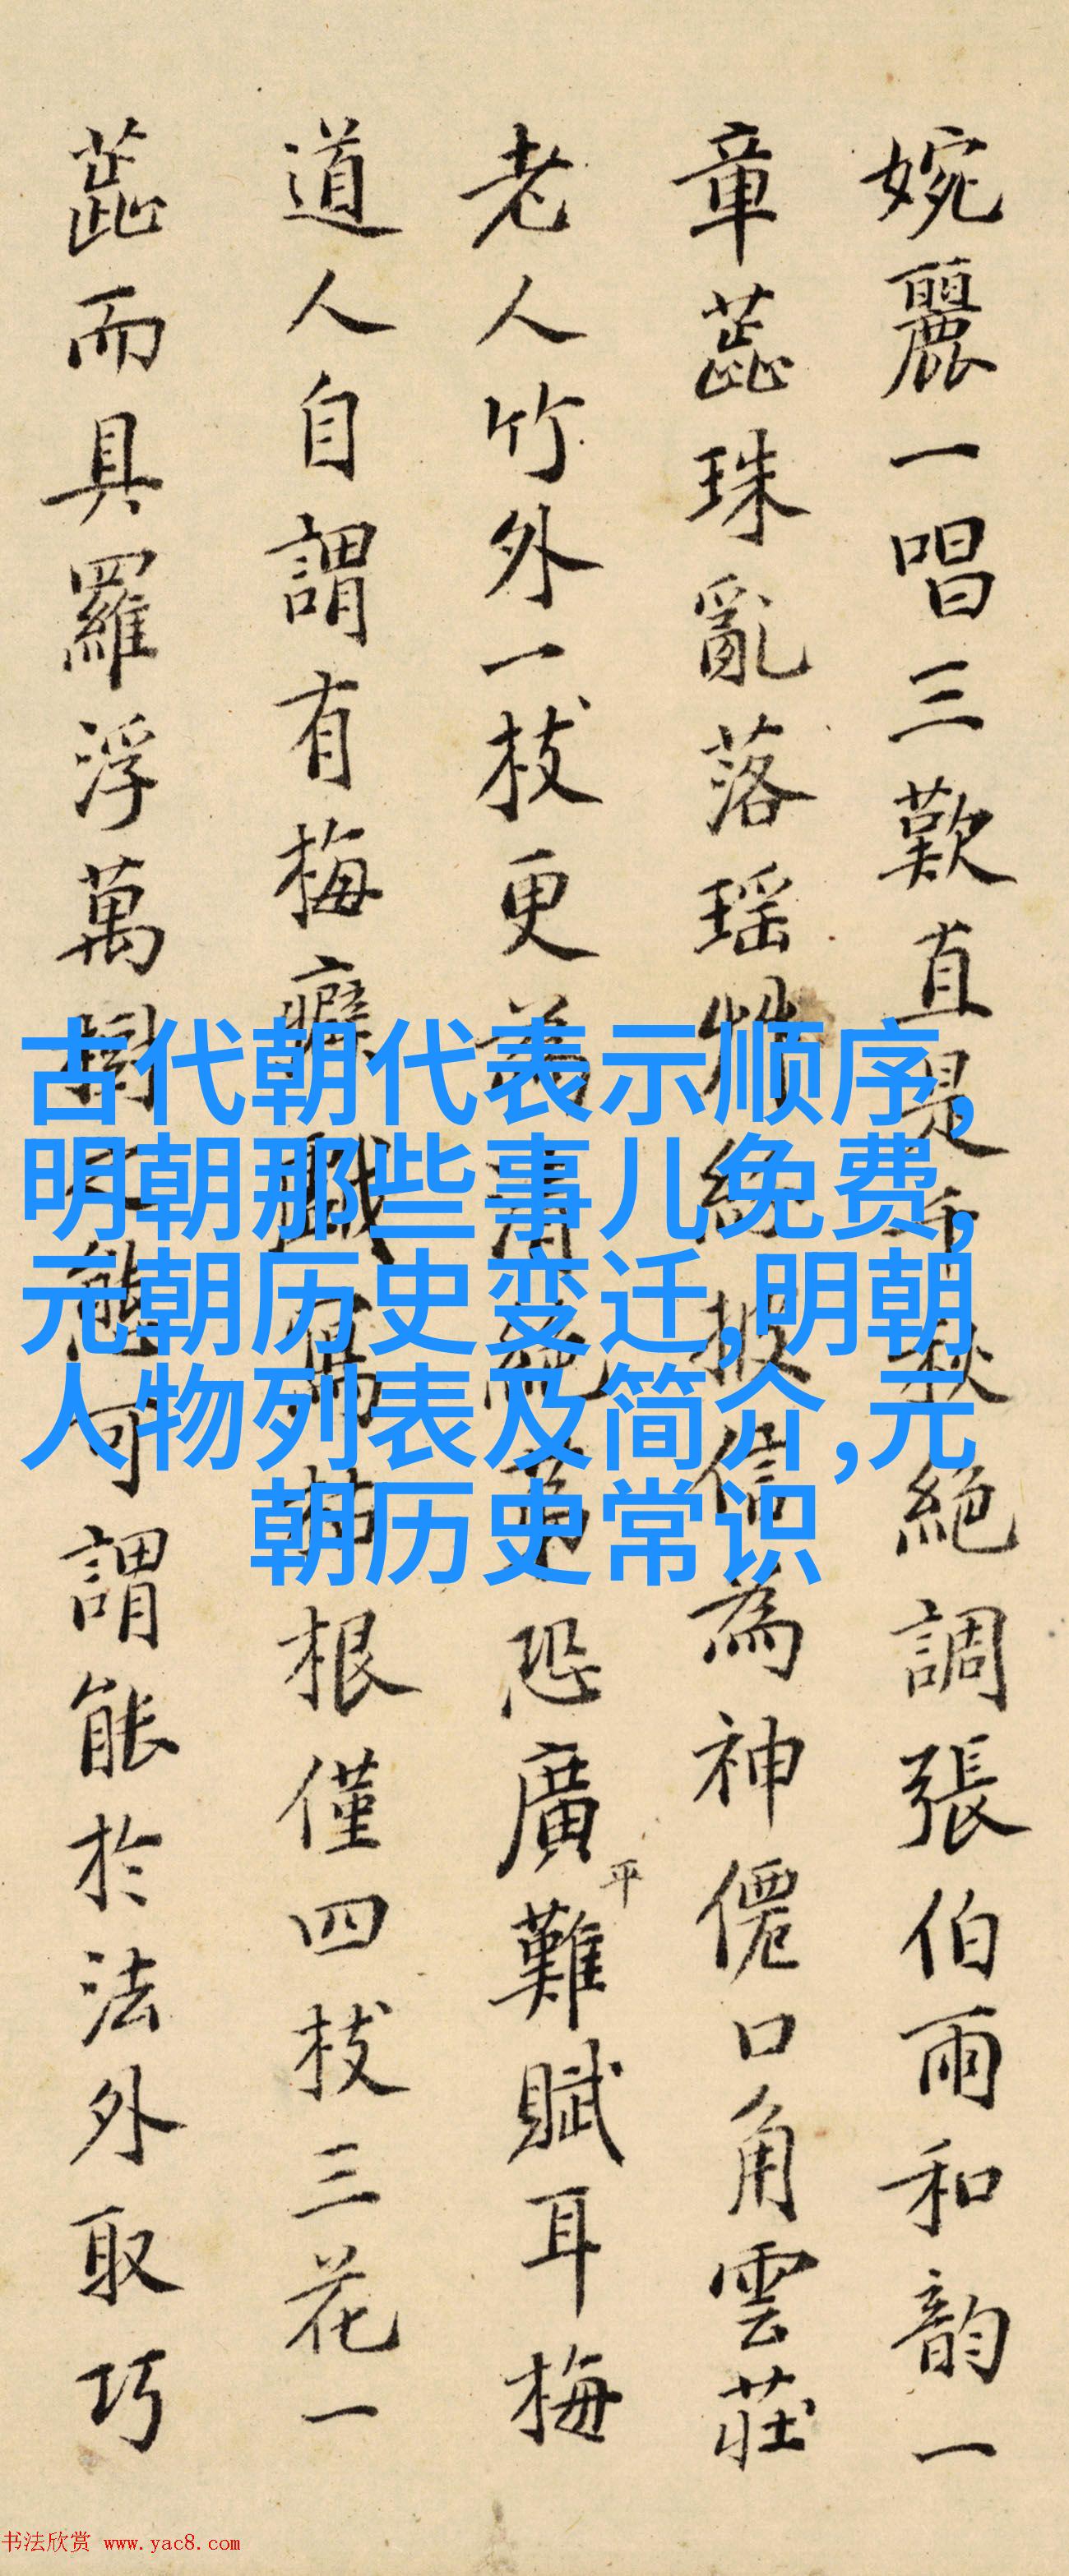 婉麗一唱三歎直是千秋絕調張伯雨和韻一
章蕋珠亂落瑶
為神僊口角雲莊
老人竹外一枝更
恐廣平難賦耳梅
道人自謂有梅癖
根僅四枝三花一
蕋而具羅浮萬樹
謂能於法外取巧
古代朝代表示顺序,
明朝那些事儿免费,
元朝历史变迁,明朝
人物列表及简介,元
朝历史常识
书法欣赏 www.yac8.com